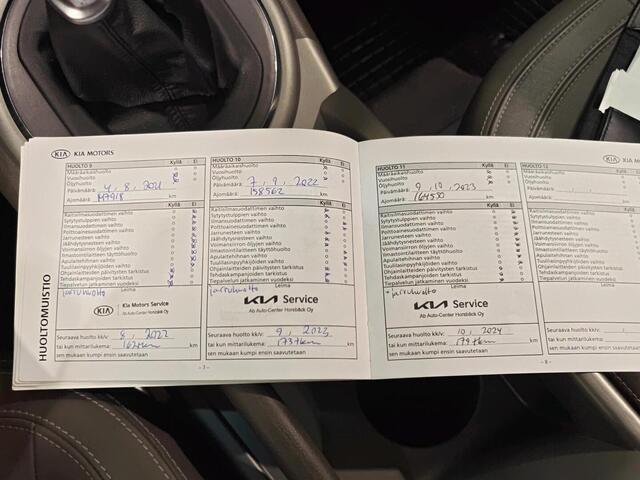 KIA KIA MOTORS
HUOLTO 9 Kyllä Ei
Määräaikaishuolto
Vuosihuolto
Öljyhuolto
Päivämäärä: 4, 8, 2021
Ajomäärä: km
Kyllä Ei
Raitisilmasuodattimen vaihto
Sytytystulppien vaihto
Ilmansuodattimen vaihto
Polttoainesuodattimen vaihto
Jarrunesteen vaihto
Jäähdytysnesteen vaihto
Voimansiirron öljyjen vaihto
Ilmastointilaitteen täyttöhuolto
Apulaitehihnan vaihto
Tuulilasinpyyhkijöiden vaihto
Ohjainlaitteiden päivitysten tarkistus
Tehdaskampanjoiden tarkistus
Tiepalvelun jatkaminen vuodeksi
Leima
+jarruhuolto
KIA Kia Motors Service
Ab Auto-Center Horsbäck Oy
Seuraava huolto kk/v: 8, 2022
tai kun mittarilukema: 162tkm km
sen mukaan kumpi ensin saavutetaan
HUOLTO 10 Kyllä Ei
Määräaikaishuolto
Vuosihuolto
Öljyhuolto
Päivämäärä: 7, 9, 2022
Ajomäärä: 158562 km
Kyllä Ei
Raitisilmasuodattimen vaihto
Sytytystulppien vaihto
Ilmansuodattimen vaihto
Polttoainesuodattimen vaihto
Jarrunesteen vaihto
Jäähdytysnesteen vaihto
Voimansiirron öljyjen vaihto
Ilmastointilaitteen täyttöhuolto
Apulaitehihnan vaihto
Tuulilasinpyyhkijöiden vaihto
Ohjainlaitteiden päivitysten tarkistus
Tehdaskampanjoiden tarkistus
Tiepalvelun jatkaminen vuodeksi
Leima
+jarruhuolto
KIA Service
Ab Auto-Center Horsbäck Oy
Seuraava huolto kk/v: 9, 2023
tai kun mittarilukema: 173tkm km
sen mukaan kumpi ensin saavutetaan
HUOLTOMUISTIO
– 7 –
HUOLTO 11 Kyllä Ei
Määräaikaishuolto
Vuosihuolto
Öljyhuolto
Päivämäärä: 9, 10, 2023
Ajomäärä: 164550 km
Kyllä Ei
Raitisilmasuodattimen vaihto
Sytytystulppien vaihto
Ilmansuodattimen vaihto
Polttoainesuodattimen vaihto
Jarrunesteen vaihto
Jäähdytysnesteen vaihto
Voimansiirron öljyjen vaihto
Ilmastointilaitteen täyttöhuolto
Apulaitehihnan vaihto
Tuulilasinpyyhkijöiden vaihto
Ohjainlaitteiden päivitysten tarkistus
Tehdaskampanjoiden tarkistus
Tiepalvelun jatkaminen vuodeksi
Leima
+jarruhuolto
KIA Service
Ab Auto-Center Horsbäck Oy
Seuraava huolto kk/v: 10, 2024
tai kun mittarilukema: 179tkm km
sen mukaan kumpi ensin saavutetaan
KIA
HUOLTO 12
Määräaikaishuolto
Vuosihuolto
Öljyhuolto
Päivämäärä:
Ajomäärä:
Raitisilmasuodattimen vaihto
Sytytystulppien vaihto
Ilmansuodattimen vaihto
Polttoainesuodattimen vaihto
Jarrunesteen vaihto
Jäähdytysnesteen vaihto
Voimansiirron öljyjen vaihto
Ilmastointilaitteen täyttöhuolto
Apulaitehihnan vaihto
Tuulilasinpyyhkijöiden vaihto
Ohjainlaitteiden päivitysten tarkistus
Tehdaskampanjoiden tarkistus
Tiepalvelun jatkaminen vuodeksi
Leima
Seuraava huolto kk/v:
tai kun mittarilukema:
sen mukaan kumpi ensin saavutetaan
– 8 –